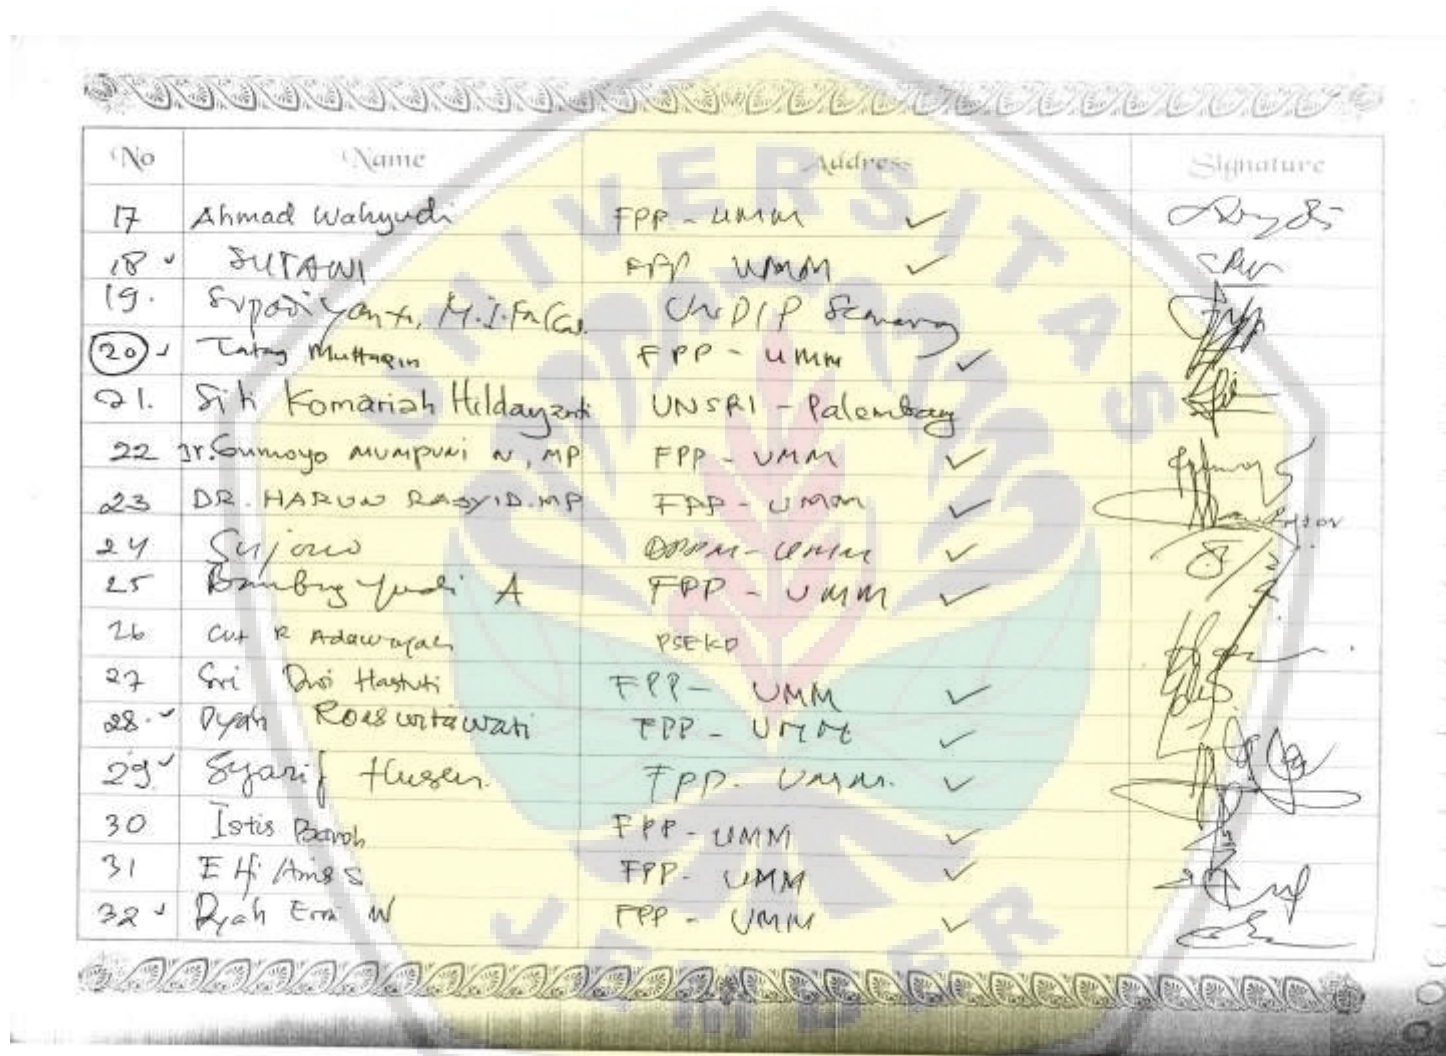 UNIVERSITAS
No Name Address Signature
17 Ahmad Wahyudi FPP - UMM ✓
18 ✓ SUTAWI FPP UMM ✓
19. Supadiyanto, M.I. UNDIP Semarang
20 ✓ Tatag Muttaqin FPP - UMM ✓
21. Siti Komariah Hildayanti UNSRI - Palembang
22 Ir. Sumoyo MUMPUNI N, MP FPP - UMM ✓
23 DR. HARUN RASYID. MP FPP - UMM ✓
24 Sujono DPPM - UMM ✓
25 Bambang Yudi A FPP - UMM ✓
26 Cut R Adawiyah PSEKP
27 Sri Dwi Hastuti FPP - UMM ✓
28. ✓ Dyah Roeswitawati FPP - UMM ✓
29 ✓ Syarif Husen. FPP. UMM. ✓
30 Istis Baroh FPP - UMM ✓
31 FPP - UMM ✓
32 ✓ Dyah Erni W FPP - UMM ✓
JEMBER